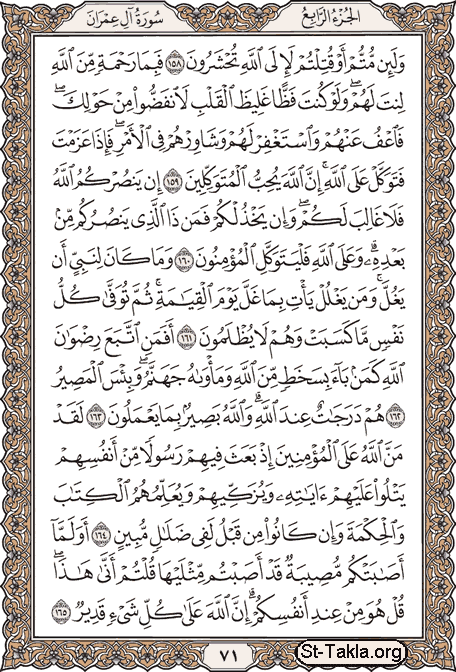 سُورَةُ آلِ عِمْرَانَ
الجُزْءُ الرَّابِعُ
وَلَئِن مُّتُّمْ أَوْ قُتِلْتُمْ لَإِلَى ٱللَّهِ تُحْشَرُونَ ١٥٨ فَبِمَا رَحْمَةٍ مِّنَ ٱللَّهِ
لِنتَ لَهُمْ ۖ وَلَوْ كُنتَ فَظًّا غَلِيظَ ٱلْقَلْبِ لَٱنفَضُّوا۟ مِنْ حَوْلِكَ ۖ
فَٱعْفُ عَنْهُمْ وَٱسْتَغْفِرْ لَهُمْ وَشَاوِرْهُمْ فِى ٱلْأَمْرِ ۖ فَإِذَا عَزَمْتَ
فَتَوَكَّلْ عَلَى ٱللَّهِ ۚ إِنَّ ٱللَّهَ يُحِبُّ ٱلْمُتَوَكِّلِينَ ١٥٩ إِن يَنصُرْكُمُ ٱللَّهُ
فَلَا غَالِبَ لَكُمْ ۖ وَإِن يَخْذُلْكُمْ فَمَن ذَا ٱلَّذِى يَنصُرُكُم مِّنۢ
بَعْدِهِۦ ۗ وَعَلَى ٱللَّهِ فَلْيَتَوَكَّلِ ٱلْمُؤْمِنُونَ ١٦٠ وَمَا كَانَ لِنَبِىٍّ أَن
يَغُلَّ ۚ وَمَن يَغْلُلْ يَأْتِ بِمَا غَلَّ يَوْمَ ٱلْقِيَٰمَةِ ۚ ثُمَّ تُوَفَّىٰ كُلُّ
نَفْسٍ مَّا كَسَبَتْ وَهُمْ لَا يُظْلَمُونَ ١٦١ أَفَمَنِ ٱتَّبَعَ رِضْوَٰنَ
ٱللَّهِ كَمَنۢ بَآءَ بِسَخَطٍ مِّنَ ٱللَّهِ وَمَأْوَىٰهُ جَهَنَّمُ ۚ وَبِئْسَ ٱلْمَصِيرُ
١٦٢ هُمْ دَرَجَٰتٌ عِندَ ٱللَّهِ ۗ وَٱللَّهُ بَصِيرٌۢ بِمَا يَعْمَلُونَ ١٦٣ لَقَدْ
مَنَّ ٱللَّهُ عَلَى ٱلْمُؤْمِنِينَ إِذْ بَعَثَ فِيهِمْ رَسُولًا مِّنْ أَنفُسِهِمْ
يَتْلُوا۟ عَلَيْهِمْ ءَايَٰتِهِۦ وَيُزَكِّيهِمْ وَيُعَلِّمُهُمُ ٱلْكِتَٰبَ
وَٱلْحِكْمَةَ وَإِن كَانُوا۟ مِن قَبْلُ لَفِى ضَلَٰلٍ مُّبِينٍ ١٦٤ أَوَلَمَّآ
أَصَٰبَتْكُم مُّصِيبَةٌ قَدْ أَصَبْتُم مِّثْلَيْهَا قُلْتُمْ أَنَّىٰ هَٰذَا ۖ
قُلْ هُوَ مِنْ عِندِ أَنفُسِكُمْ ۗ إِنَّ ٱللَّهَ عَلَىٰ كُلِّ شَىْءٍ قَدِيرٌ ١٦٥
٧١
St-Takla.org